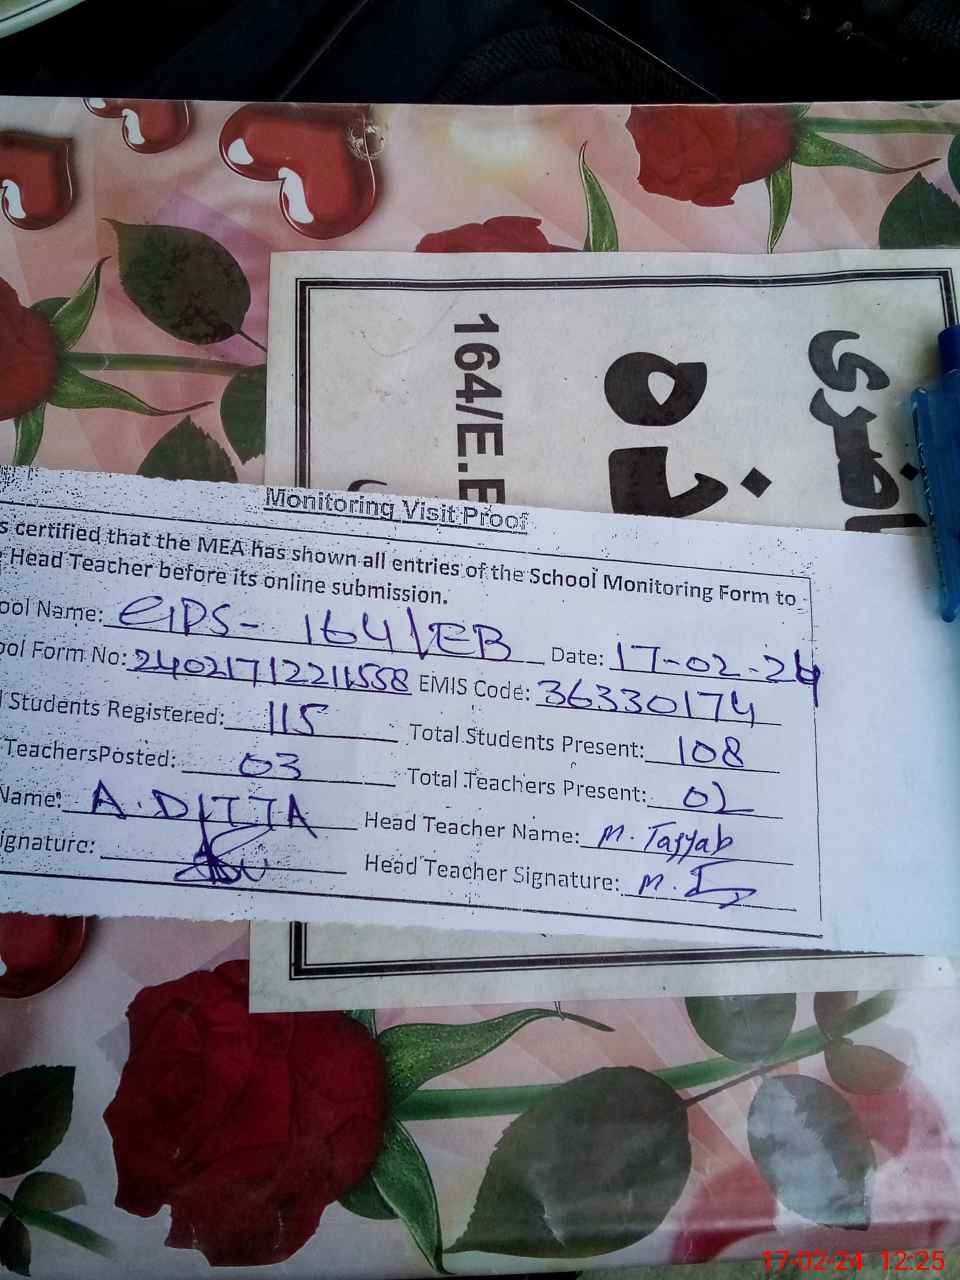 164/E.B
Monitoring Visit Proof
s certified that the MEA has shown all entries of the School Monitoring Form to
Head Teacher before its online submission.
ool Name: GPS- 164/EB Date: 17-02-24
ool Form No: EMIS Code: 36330174
Students Registered: 115 Total Students Present: 108
TeachersPosted: 03 Total Teachers Present: 02
Name: A. DITTA Head Teacher Name: M. Tayyab
ignature: Head Teacher Signature: M.
17-02-24 12:25